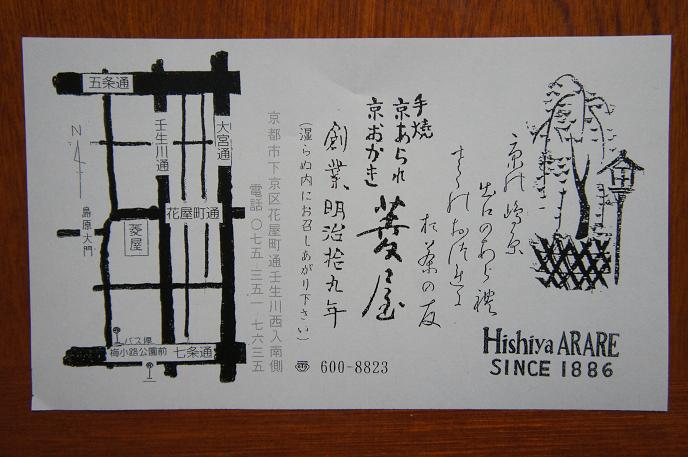 京の嶋原
出口のあられ
お茶の友
手焼
京あられ
京おかき
菱屋
創業明治拾九年
(湿らぬ内にお召しあがり下さい)
京都市下京区花屋町通壬生川西入南側
電話〇七五―三五一―七六三五
600-8823
Hishiya ARARE
SINCE 1886
五条通
壬生川通
大宮通
N
島原大門
花屋町通
菱屋
バス停
梅小路公園前
七条通